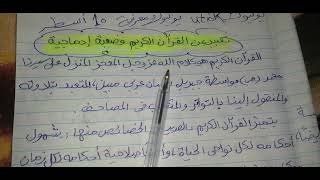 تعبير عن القرآن الكريم وضعية إدماجية
القرآن الكريم هو كلام الله عز وجل المعجز المنزل على سيدنا
محمد (ص) بواسطة جبريل بلسان عربي مبين، المتعبد بتلاوته
والمنقول إلينا بالتواتر والمكتوب في المصاحف
يتميز القرآن الكريم بالعديد من الخصائص منها: شمول
أحكامه لكل نواحي الحياة، وأن صلاحية أحكامه لكل زمان